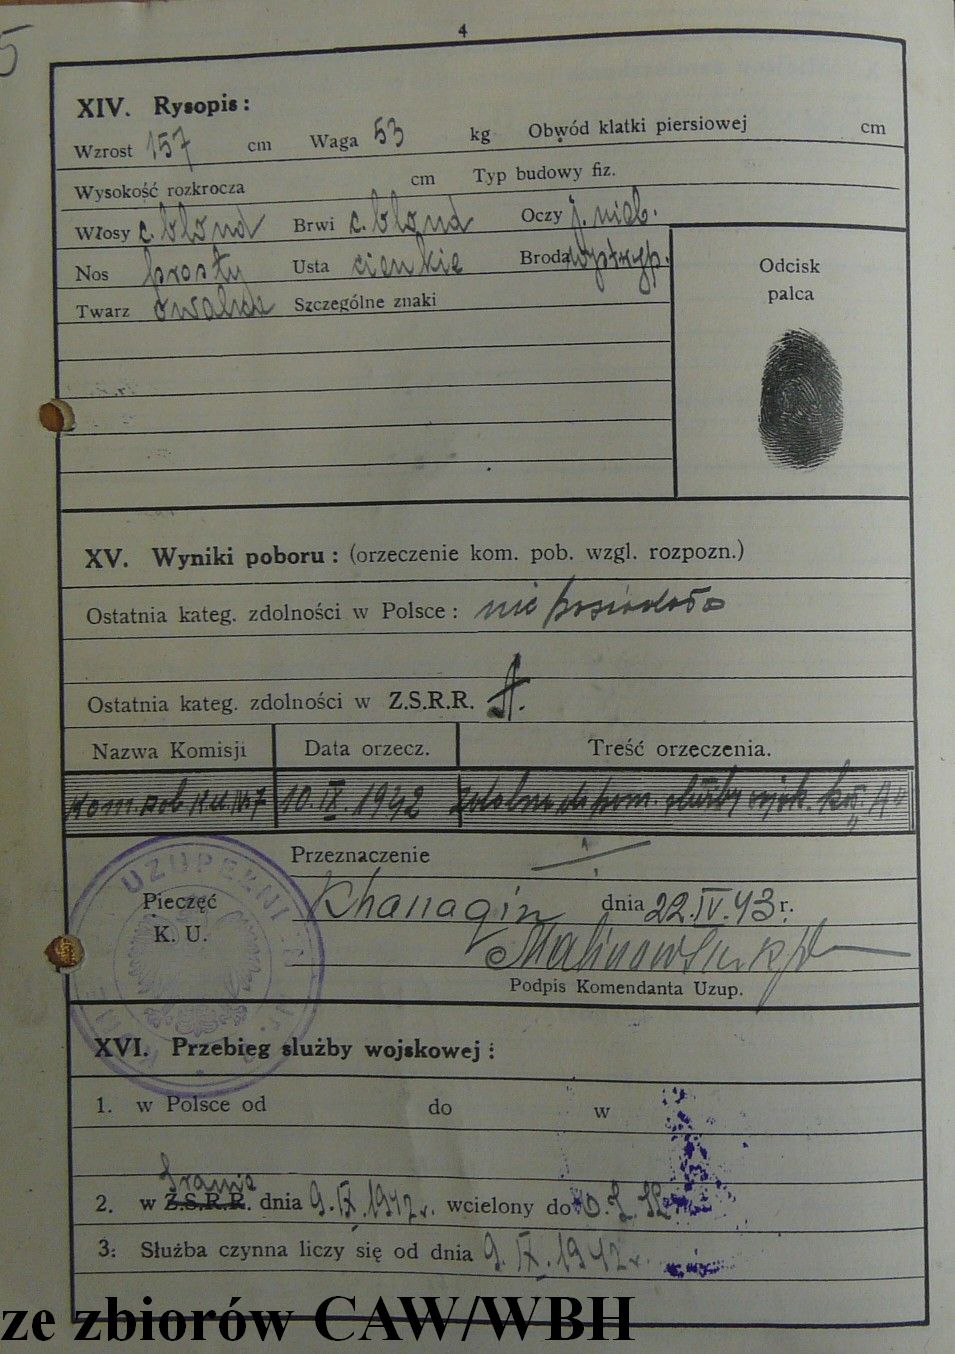 4
5
XIV. Rysopis:
Wzrost 157 cm Waga 53 kg Obwód klatki piersiowej cm
Wysokość rozkrocza cm Typ budowy fiz.
Włosy c. blond Brwi c. blond Oczy j. nieb.
Nos prosty Usta cienkie Broda występ.
Twarz owalna Szczególne znaki
Odcisk
palca
XV. Wyniki poboru: (orzeczenie kom. pob. wzgl. rozpozn.)
Ostatnia kateg. zdolności w Polsce: nie posiadała
Ostatnia kateg. zdolności w Z.S.R.R. A.
Nazwa Komisji Data orzecz. Treść orzeczenia.
Kom. pob. K.U. Nr 7 10.IX.1942 zdolna do pom. służby wojsk. kat. "A"
Przeznaczenie
Pieczęć Khanaqin dnia 22.IV.43 r.
K. U.
Malinowski
Podpis Komendanta Uzup.
XVI. Przebieg służby wojskowej:
1. w Polsce od do w
Iranie
2. w Z.S.R.R. dnia 9.IX.1942 r. wcielony do
3. Służba czynna liczy się od dnia 9.IX.1942 r.
ze zbiorów CAW/WBH